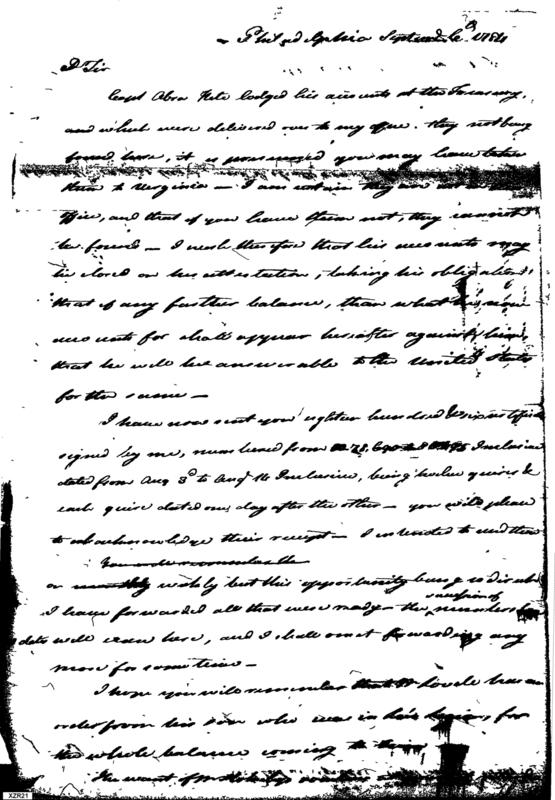 Philadelphia September 1784
D Sir
Capt Abra Hite lodged his accounts at the Treasury,
and which were delivered over to my office. they not being
found here, it is you may have taken
them to Virginia — I am certain they are not in
office, and that if you have them not, they cannot
be found — I wish therefore that his accounts may
be closed on his attestation, taking his obligation
that if any further balance, than what he now
accounts for shall appear hereafter against him,
that he will be answerable to the United States
for the same —
I have now sent you eighteen hundred & six certificates
signed by me, numbered from Inclusive
dated from Aug 3d to Augt 14 Inclusive, being twelve quires &
each quire dated one day after the other — you will please
to acknowledge their receipt — I intended to send them
or weekly but this opportunity being so direct
I have forwarded all that were made — the succession of numbers &
dates will cease here, and I shall omit forwarding any
more for some time —
I hope you will remember Lovele has an
order from his son who was in, for
the whole balance coming to
the want of
XZR21